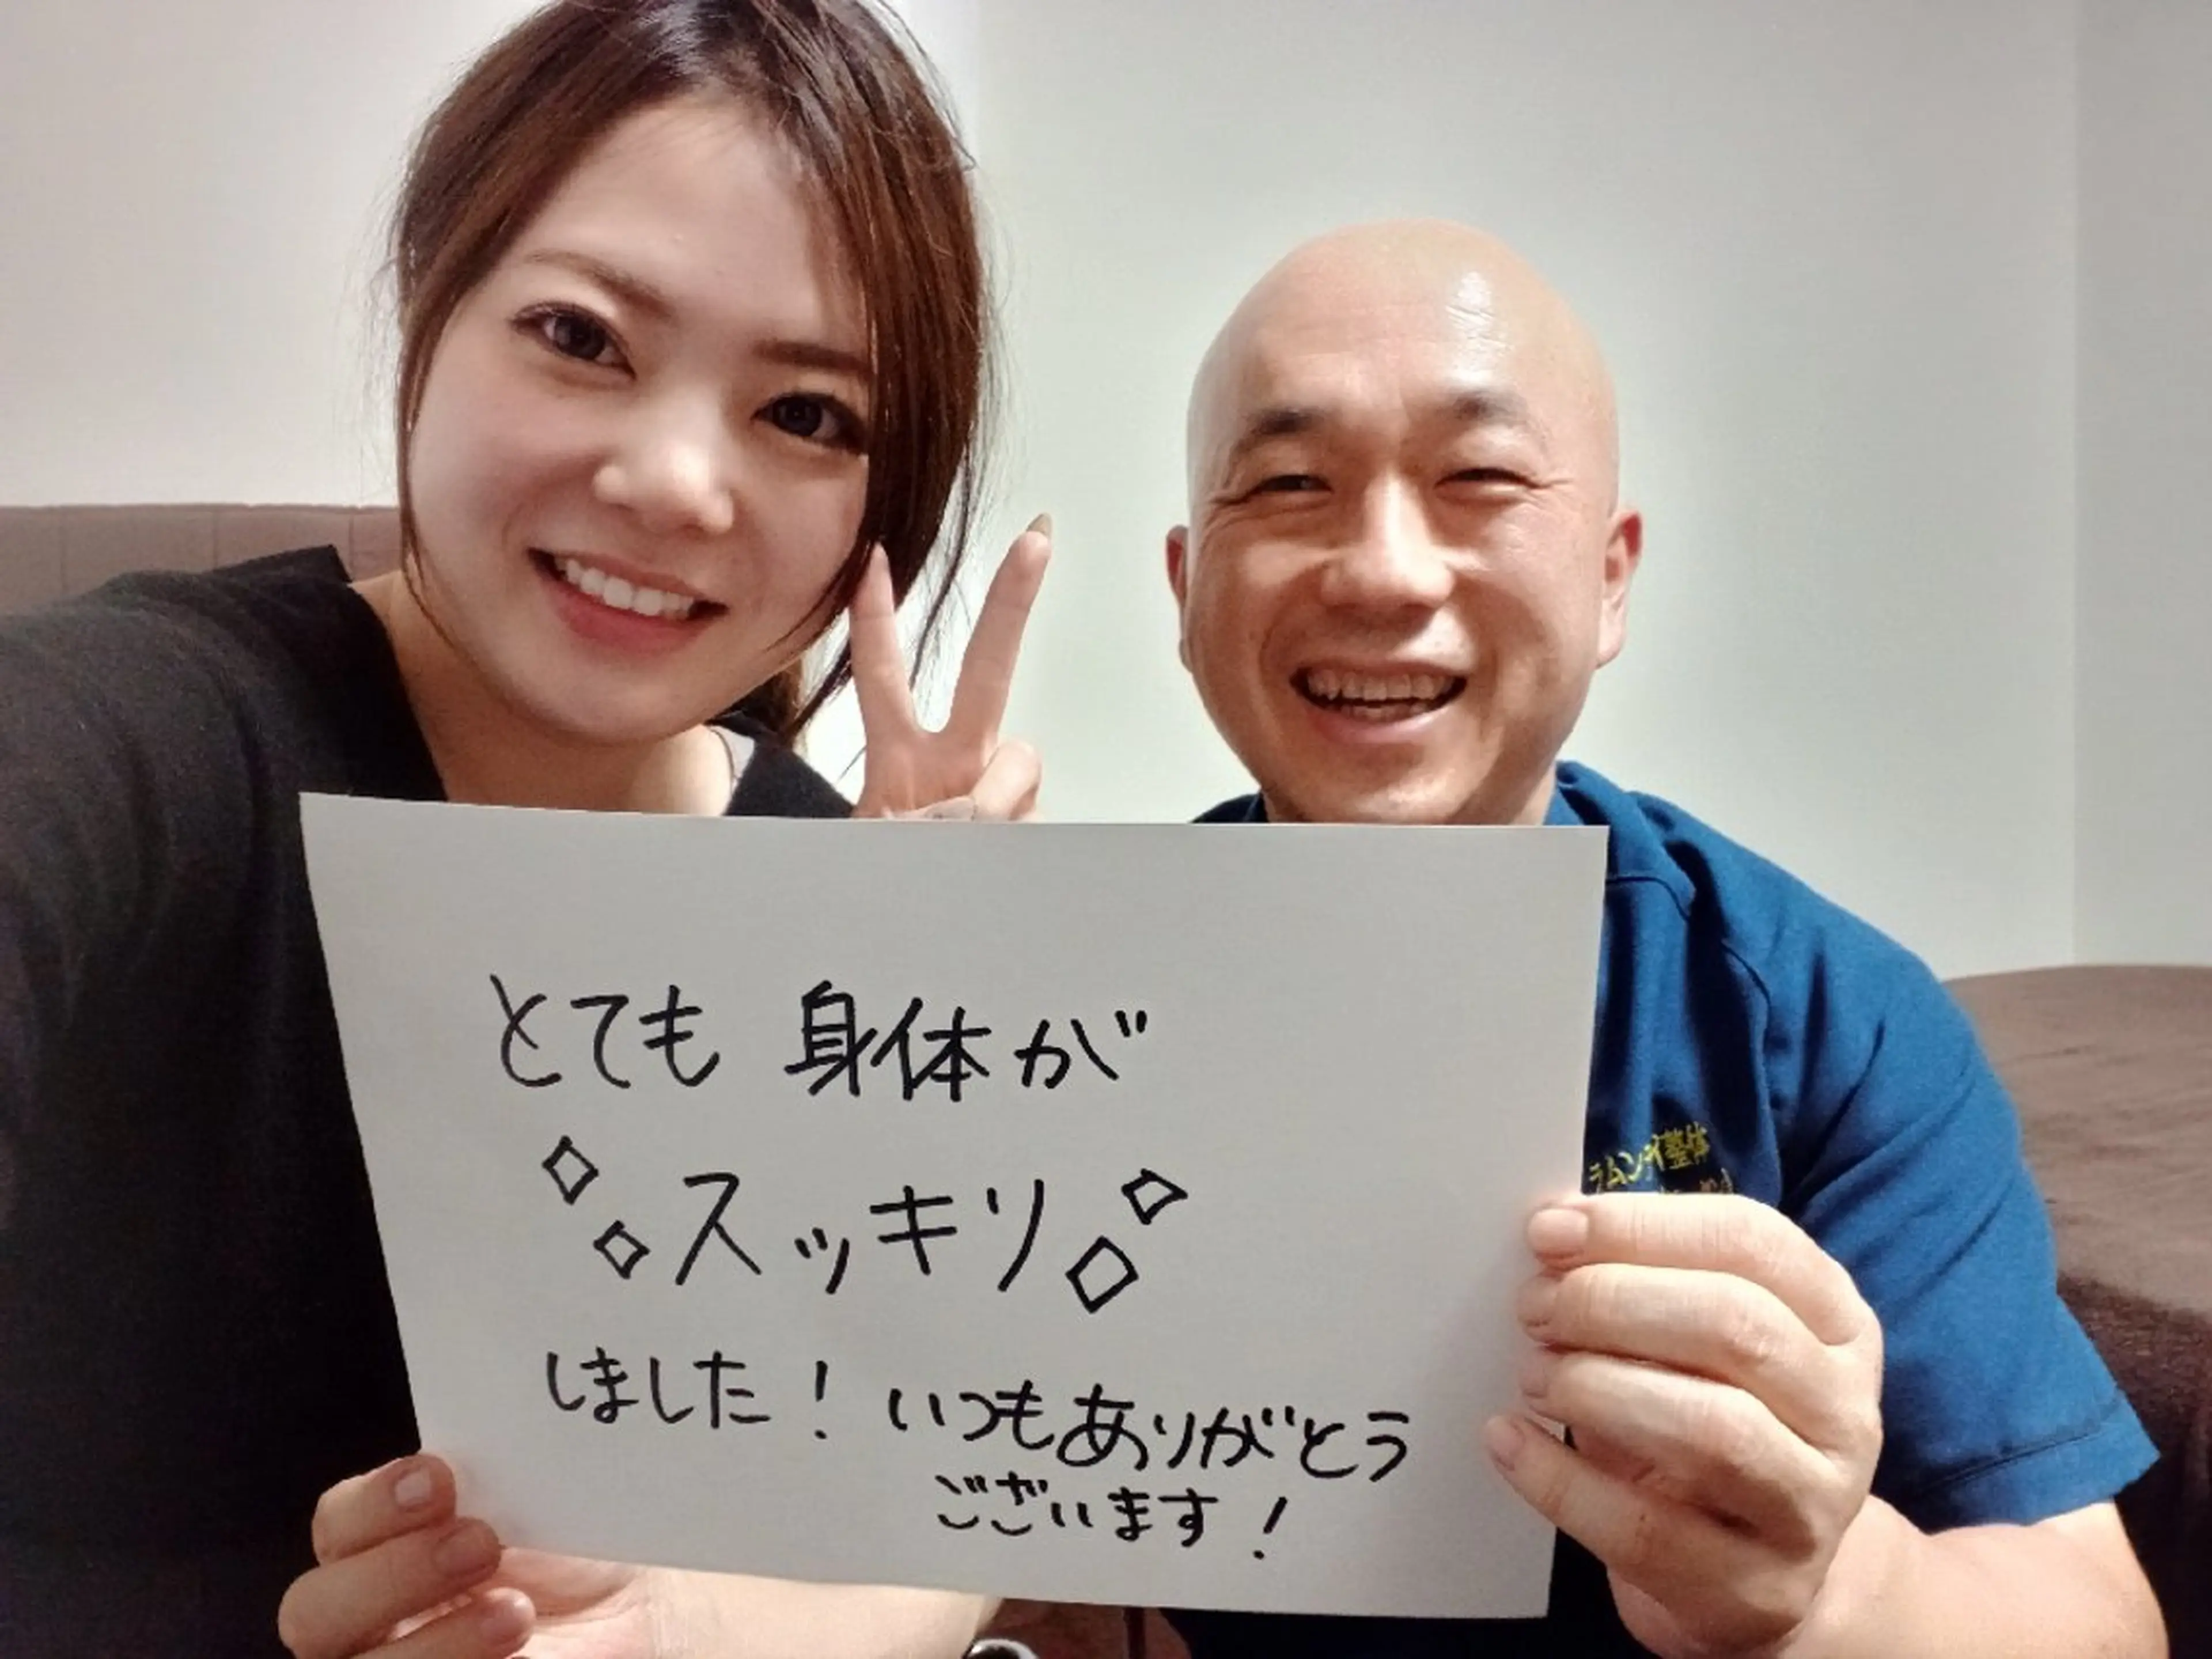 とても 身体が
スッキリ
しました！ いつもありがとう
ございます！
ラムンテ整体